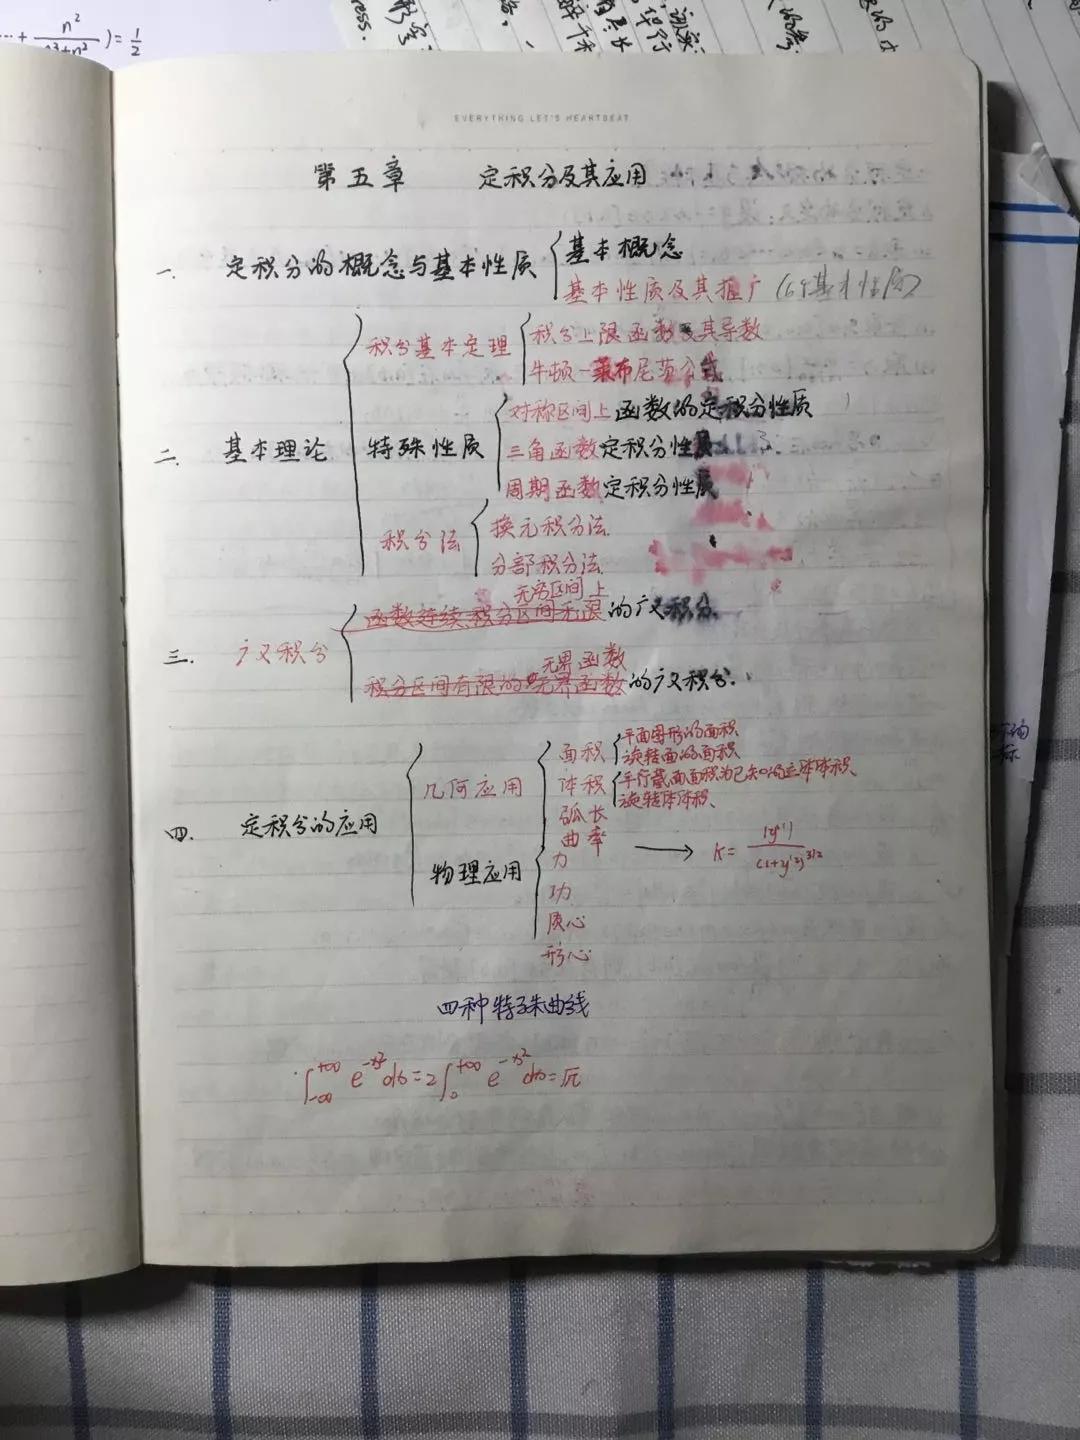 n²
… + ─── ) = 1/2
n³+n²
EVERYTHING LET'S HEARTBEAT
第五章 定积分及其应用
一. 定积分的概念与基本性质 { 基本概念
基本性质及其推广 (6个基本性质)
二. 基本理论
积分基本定理 { 积分上限函数及其导数
牛顿-莱布尼茨公式
特殊性质 { 对称区间上函数的定积分性质
三角函数定积分性质
周期函数定积分性质
积分法 { 换元积分法.
分部积分法.
三. 广义积分
无穷区间上
函数连续,积分区间无限的广义积分.
无界函数
积分区间有限的无界函数的广义积分.
四. 定积分的应用
几何应用
面积 { 平面图形的面积
旋转面的面积
体积 { 平行截面面积为已知的立体体积、
旋转体体积、
弧长
曲率 → K = |y''| / (1+y'²)^{3/2}
物理应用
力
功
质心
形心
四种特殊曲线
∫_{-∞}^{+∞} e^{-x²}dx = 2∫_0^{+∞} e^{-x²}dx = √π